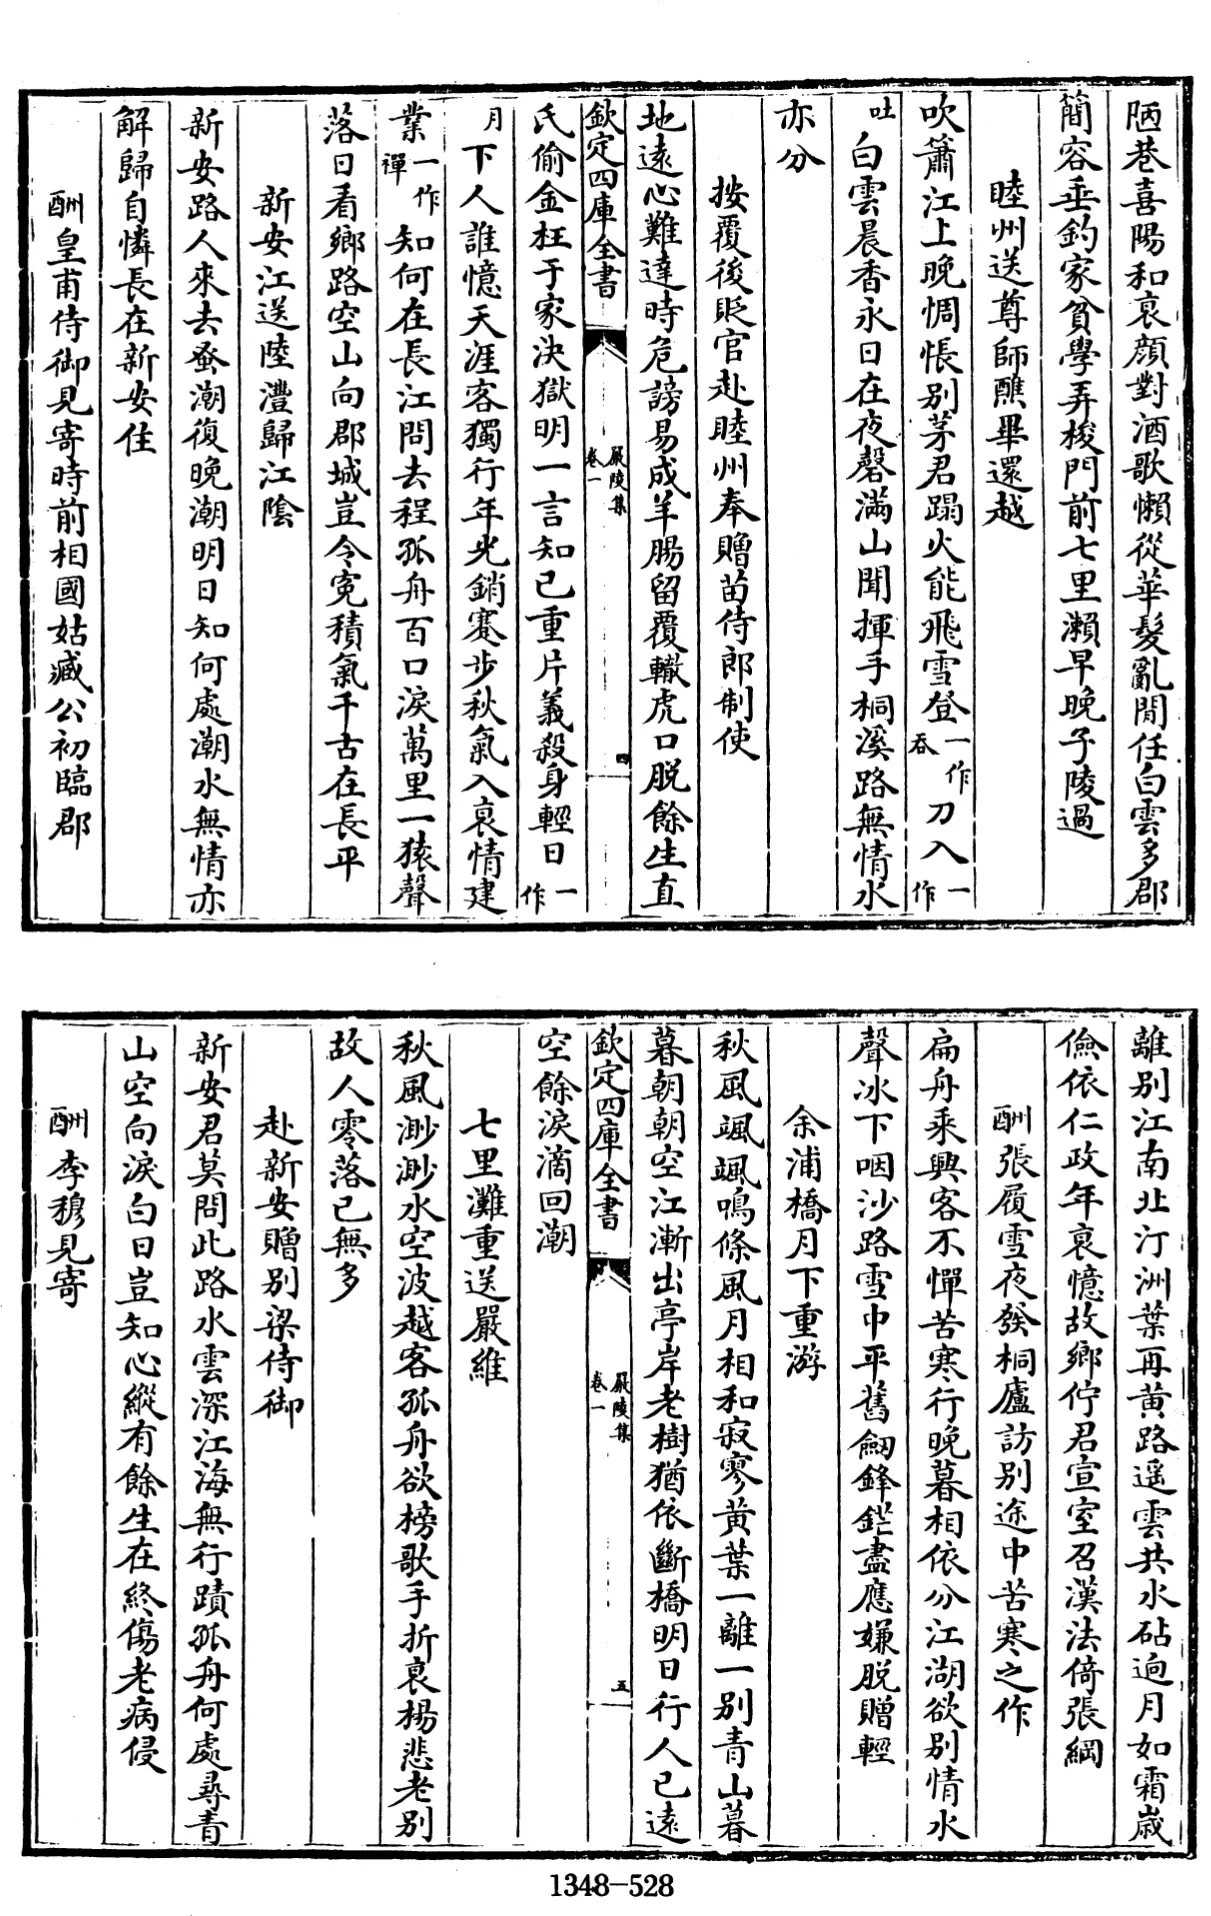 陋巷喜陽和哀顔對酒歌懶從華髮亂閒任白雲多郡
簡容垂釣家貧學弄梭門前七里瀨早晚子陵過
睦州送尊師醮畢還越
吹簫江上晚惆悵别茅君蹋火能飛雪登一作吞刀入一作
吐白雲晨香永日在夜磬滿山聞揮手桐溪路無情水
亦分
按覆後貶官赴睦州奉贈苗侍郎制使
地遠心難達時危謗易成羊腸留覆轍虎口脱餘生直
欽定四庫全書
嚴陵集
卷一
四
氏偷金枉于家決獄明一言知已重片義殺身輕日一作
月下人誰憶天涯客獨行年光銷蹇步秋氣入哀情建
業一作禪知何在長江問去程孤舟百口淚萬里一猿聲
落日看鄉路空山向郡城豈令寃積氣千古在長平
新安江送陸灃歸江陰
新安路人來去蚤潮復晚潮明日知何處潮水無情亦
解歸自憐長在新安住
酬皇甫侍御見寄時前相國姑臧公初臨郡
離别江南北汀洲葉再黄路遥雲共水砧逈月如霜歳
儉依仁政年衰憶故鄉佇君宣室召漢法倚張綱
酬張履雪夜發桐廬訪别途中苦寒之作
扁舟乘興客不憚苦寒行晚暮相依分江湖欲别情水
聲冰下咽沙路雪中平舊劒鋒鋩盡應嫌脱贈輕
余浦橋月下重游
秋風颯颯鳴條風月相和寂寥黄葉一離一别青山暮
暮朝朝空江漸出亭岸老樹猶依斷橋明日行人已遠
欽定四庫全書
嚴陵集
卷一
五
空餘淚滴回潮
七里灘重送嚴維
秋風渺渺水空波越客孤舟欲榜歌手折衰楊悲老别
故人零落已無多
赴新安贈别梁侍御
新安君莫問此路水雲深江海無行蹟孤舟何處尋青
山空向淚白日豈知心縱有餘生在終傷老病侵
酬李穆見寄
1348-528